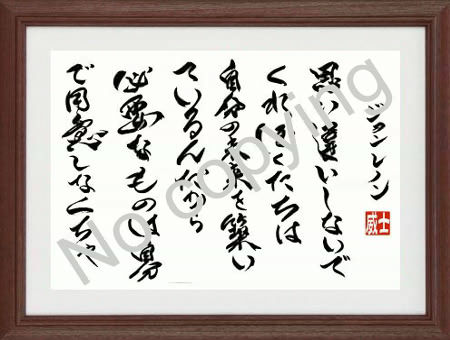 ジョンレノン
思い違いしないで
くれ ぼくたちは
自分の未来を築い
ているんだから
必要なものは男
で用意しなくちゃ
威士
No copying